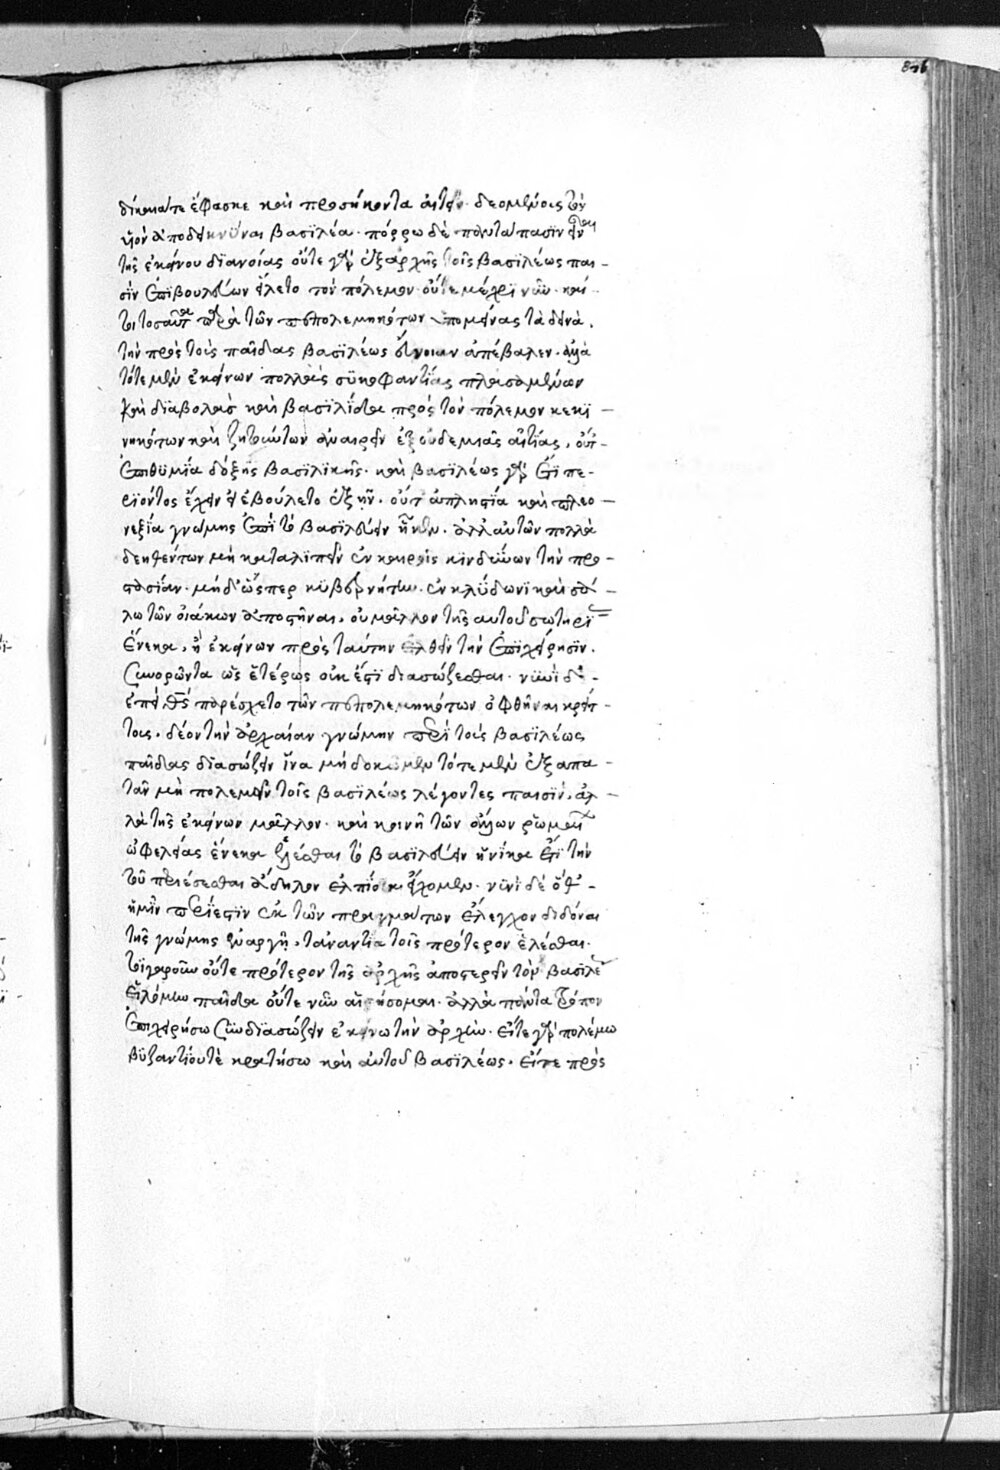 826
δίκαιά τε ἔφασκε καὶ προσήκοντα αἰτεῖν. δεομένοις τὸν
υἱὸν ἀποδεικνύναι βασιλέα. πόρρω δὲ πανταπασιν εἶναι
τῆς ἐκείνου διανοίας οὔτε γὰρ ἐξαρχῆς τοῖς βασιλέως παι-
σὶν ἐπιβουλεύων εἵλετο τὸν πόλεμον. οὔτε μέχρι νῦν. καί
τοι τοσαῦτα παρὰ τῶν πεπολεμηκότων ὑπομείνας τὰ δεινὰ.
τὴν πρὸς τοὺς παῖδας βασιλέως εὔνοιαν ἀπέβαλεν. ἀλλὰ
τότε μὲν ἐκείνων πολλὰς συκοφαντίας πλασαμένων
καὶ διαβολὰς καὶ βασιλίδα πρὸς τὸν πόλεμον κεκι-
νηκότων καὶ ζητούντων ἀναιρεῖν ἐξ οὐδεμιᾶς αἰτίας, οὔτ'
ἐπιθυμία δόξης βασιλικῆς. καὶ βασιλέως γὰρ ἔτι πε-
ριόντος ἔχειν εἰ ἐβούλετο ἐξῆν. οὔτ' ἀπληστία καὶ πλεο-
νεξία γνώμης ἐπὶ τὸ βασιλεύειν ἧκεν. ἀλλ' αὐτῶν πολλὰ
δεηθέντων μὴ καταλιπεῖν ἐν καιροῖς κινδύνων τὴν προ-
στασίαν. μηδ' ὥσπερ κυβερνήτην. ἐν κλύδωνι καὶ σά-
λω τῶν οἰάκων ἀποστῆναι. οὐ μᾶλλον τῆς αυτοῦ σωτηρί
ἕνεκα, ἢ ἐκείνων πρὸς ταύτην ἐλθεῖν τὴν ἐπιχείρησιν.
συνορῶντα ὡς ἑτέρως οὐκ ἔστι διασώζεσθαι. νυνὶ δὲ-
ἐπεὶ θεὸς παρέσχετο τῶν πεπολεμηκότων ὀφθῆναι κρείτ
τους. δέον τὴν ἀρχαίαν γνώμην περὶ τοὺς βασιλέως
παῖδας διασώζειν ἵνα μὴ δοκῶμεν τότε μὲν ἐξαπα-
τᾶν μὴ πολεμεῖν τοῖς βασιλέως λέγοντες παισὶν. ἀλ-
λὰ τῆς ἐκείνων μᾶλλον. καὶ κοινῆ τῶν ἄλλων ρωμαίων
ὠφελείας ἕνεκα ἑλέσθαι τὸ βασιλεύειν ἡνίκα ἔτι τὴν
τοῦ περιέσεσθαι ἄδηλον ἐλπίδα εἴχομεν. νυνὶ δὲ ὅτ'-
ἡμῖν πάρεστιν ἐκ τῶν πραγμάτων ἔλεγχον διδόναι
τῆς γνώμης ἐναργῆ, ταναντία τοῖς πρότερον ἑλέσθαι.
τοιγαροῦν οὔτε πρότερον τῆς ἀρχῆς ἀποστερεῖν τὸν βασιλέως
εἱλόμην παῖδα οὔτε νῦν αἱρήσομαι. ἀλλὰ πάντα τρόπον
ἐπιχειρήσω συνδιασώζειν ἐκείνω τὴν ἀρχὴν. εἴτε γὰρ πολέμω
βυζαντίου τὲ κρατήσω καὶ αὐτοῦ βασιλέως. εἴτε πρὸς